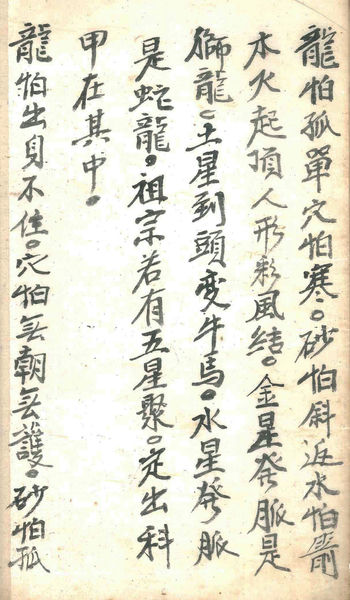 龍怕孤單穴怕寒。砂怕斜返水怕箭
木火起頂人形彩風結。金星發脈是
獅龍。土星到頭变牛馬。水星發脈
是蛇龍。祖宗若有五星聚。定出科
甲在其中。
龍怕出身不住。穴怕無朝無護。砂怕孤